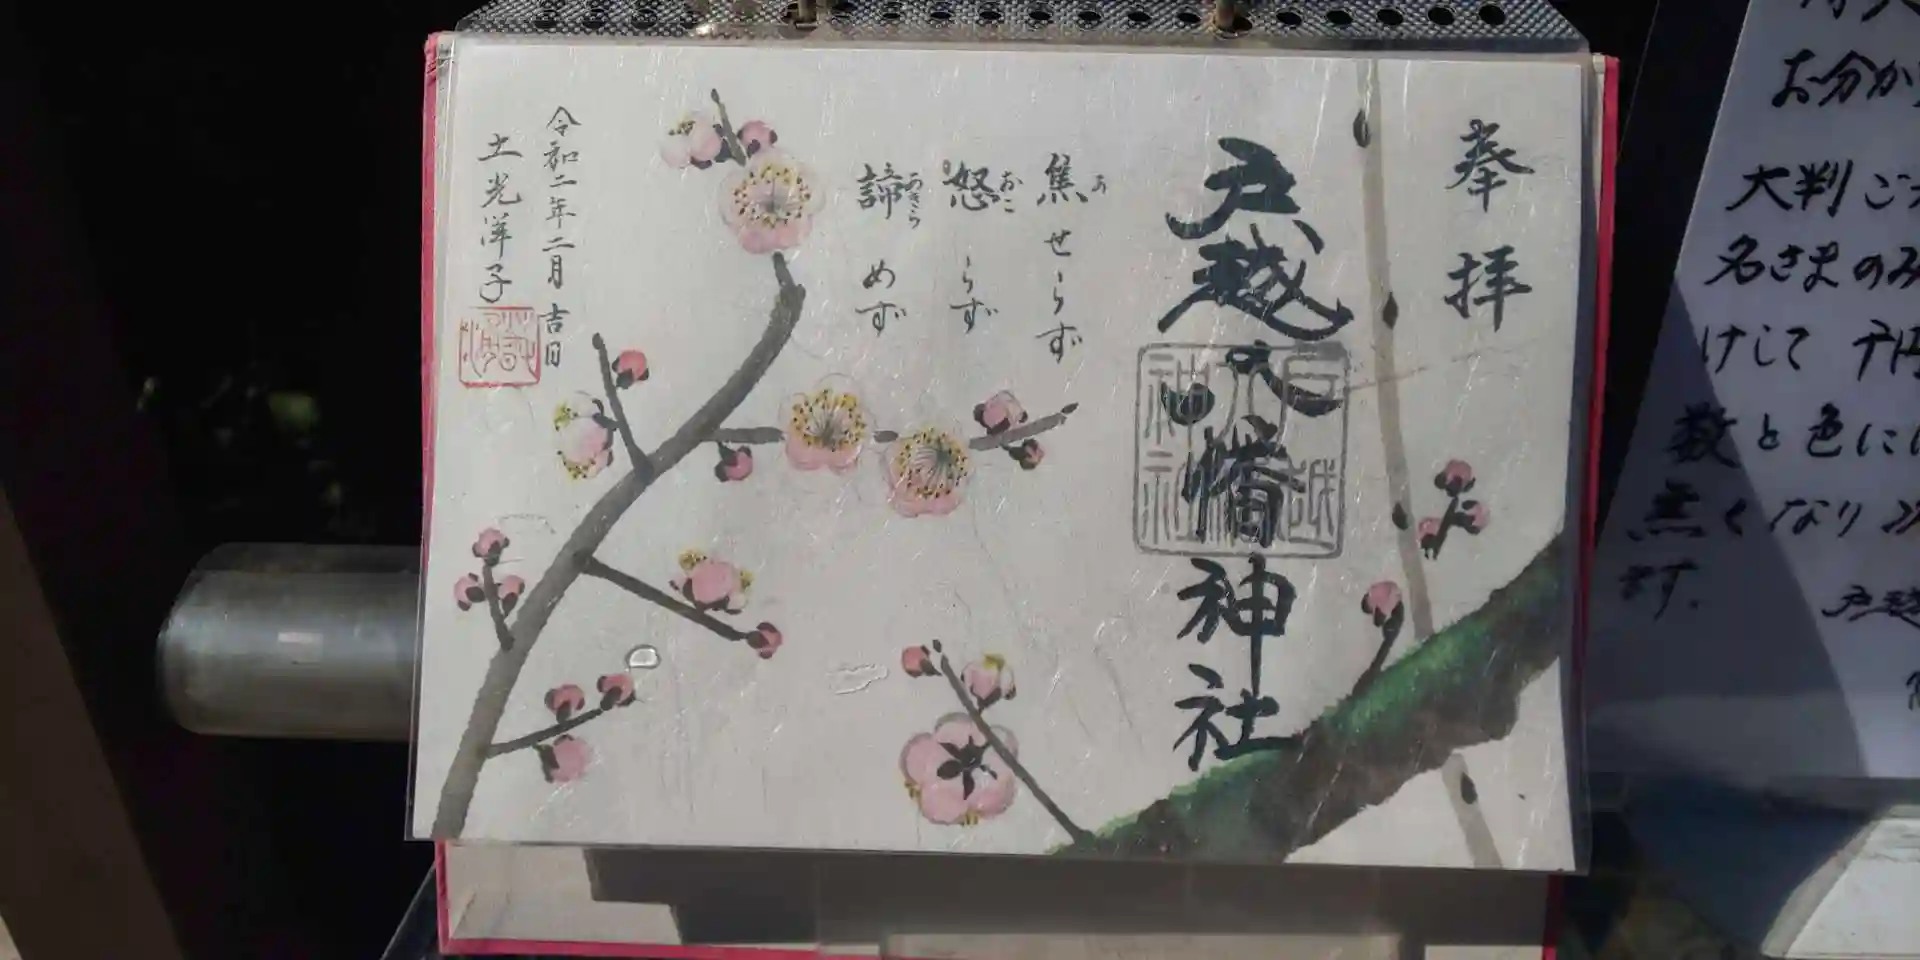 奉拝
戸越八幡神社
戸越八幡神社
焦せらず
あ
怒らず
おこ
諦めず
あきら
令和二年二月吉日
土光洋子
お分か
大判ご
名さまのみ
けして 千円
数と色に
無くなり次
ます。
戸越